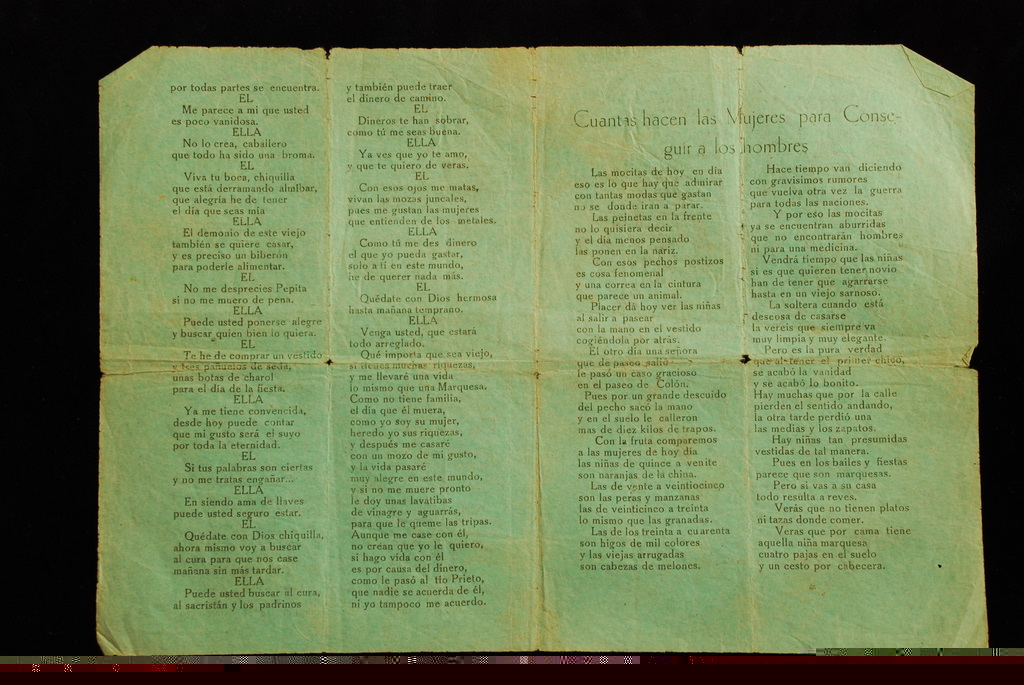 por todas partes se encuentra.
EL
Me parece a mi que usted
es poco vanidosa.
ELLA
No lo crea, caballero
que todo ha sido una broma.
EL
Viva tu boca, chiquilla
que está derramando almibar,
que alegría he de tener
el día que seas mía
ELLA
El demonio de este viejo
también se quiere casar,
y es preciso un biberón
para poderle alimentar.
EL
No me desprecies Pepita
si no me muero de pena.
ELLA
Puede usted ponerse alegre
y buscar quien bien lo quiera.
EL
Te he de comprar un vestido
y tres pañuelos de seda,
unas botas de charol
para el dia de la fiesta.
ELLA
Ya me tiene convencida,
desde hoy puede contar
que mi gusto será el suyo
por toda la eternidad.
EL
Si tus palabras son ciertas
y no me tratas engañar...
ELLA
En siendo ama de llaves
puede usted seguro estar.
EL
Quédate con Dios chiquilla,
ahora mismo voy a buscar
al cura para que nos case
mañana sin más tardar.
ELLA
Puede usted buscar al cura,
al sacristán y los padrinos
y también puede traer
el dinero de camino.
EL
Dineros te han sobrar,
como tú me seas buena.
ELLA
Ya ves que yo te amo,
y que te quiero de veras.
EL
Con esos ojos me matas,
vivan las mozas juncales,
pues me gustan las mujeres
que entienden de los metales.
ELLA
Como tú me des dinero
el que yo pueda gastar,
solo a ti en este mundo,
he de querer nada más.
EL
Quédate con Dios hermosa
hasta mañana temprano.
ELLA
Venga usted, que estará
todo arreglado.
Qué importa que sea viejo,
si tienes muchas riquezas,
y me llevaré una vida
lo mismo que una Marquesa.
Como no tiene familia,
el día que él muera,
como yo soy su mujer,
heredo yo sus riquezas,
y después me casaré
con un mozo de mi gusto,
y la vida pasaré
muy alegre en este mundo,
y si no me muere pronto
le doy unas lavatibas
de vinagre y aguarrás,
para que le queme las tripas.
Aunque me case con él,
no crean que yo le quiero,
si hago vida con él
es por causa del dinero,
como le pasó al tío Prieto,
que nadie se acuerda de él,
ni yo tampoco me acuerdo.
Cuantas hacen las Mujeres para Conse-
guir a los hombres
Las mocitas de hoy en día
eso es lo que hay que admirar
con tantas modas que gastan
no se donde iran a parar.
Las peinetas en la frente
no lo quisiera decir
y el día menos pensado
las ponen en la nariz.
Con esos pechos postizos
es cosa fenomenal
y una correa en la cintura
que parece un animal.
Placer dá hoy ver las niñas
al salir a pasear
con la mano en el vestido
cogiéndola por atrás.
El otro día una señora
que de paseo salió
le pasó un caso gracioso
en el paseo de Colón.
Pues por un grande descuido
del pecho sacó la mano
y en el suelo le calleron
mas de diez kilos de trapos.
Con la fruta comparemos
a las mujeres de hoy día
las niñas de quince a venite
son naranjas de la china.
Las de vente a veintiocinco
son las peras y manzanas
las de veinticinco a treinta
lo mismo que las granadas.
Las de los treinta a cuarenta
son higos de mil colores
y las viejas arrugadas
son cabezas de melones.
Hace tiempo van diciendo
con gravísimos rumores
que vuelva otra vez la guerra
para todas las naciones.
Y por eso las mocitas
ya se encuentran aburridas
que no encontrarán hombres
ni para una medicina.
Vendrá tiempo que las niñas
si es que quieren tener novio
han de tener que agarrarse
hasta en un viejo sarnoso.
La soltera cuando está
deseosa de casarse
la vereis que siempre va
muy limpia y muy elegante.
Pero es la pura verdad
que al tener el primer chico,
se acabó la vanidad
y se acabó lo bonito.
Hay muchas que por la calle
pierden el sentido andando,
la otra tarde perdió una
las medias y los zapatos.
Hay niñas tan presumidas
vestidas de tal manera.
Pues en los bailes y fiestas
parece que son marquesas.
Pero si vas a su casa
todo resulta a reves.
Verás que no tienen platos
ni tazas donde comer.
Veras que por cama tiene
aquella niña marquesa
cuatro pajas en el suelo
y un cesto por cabecera.